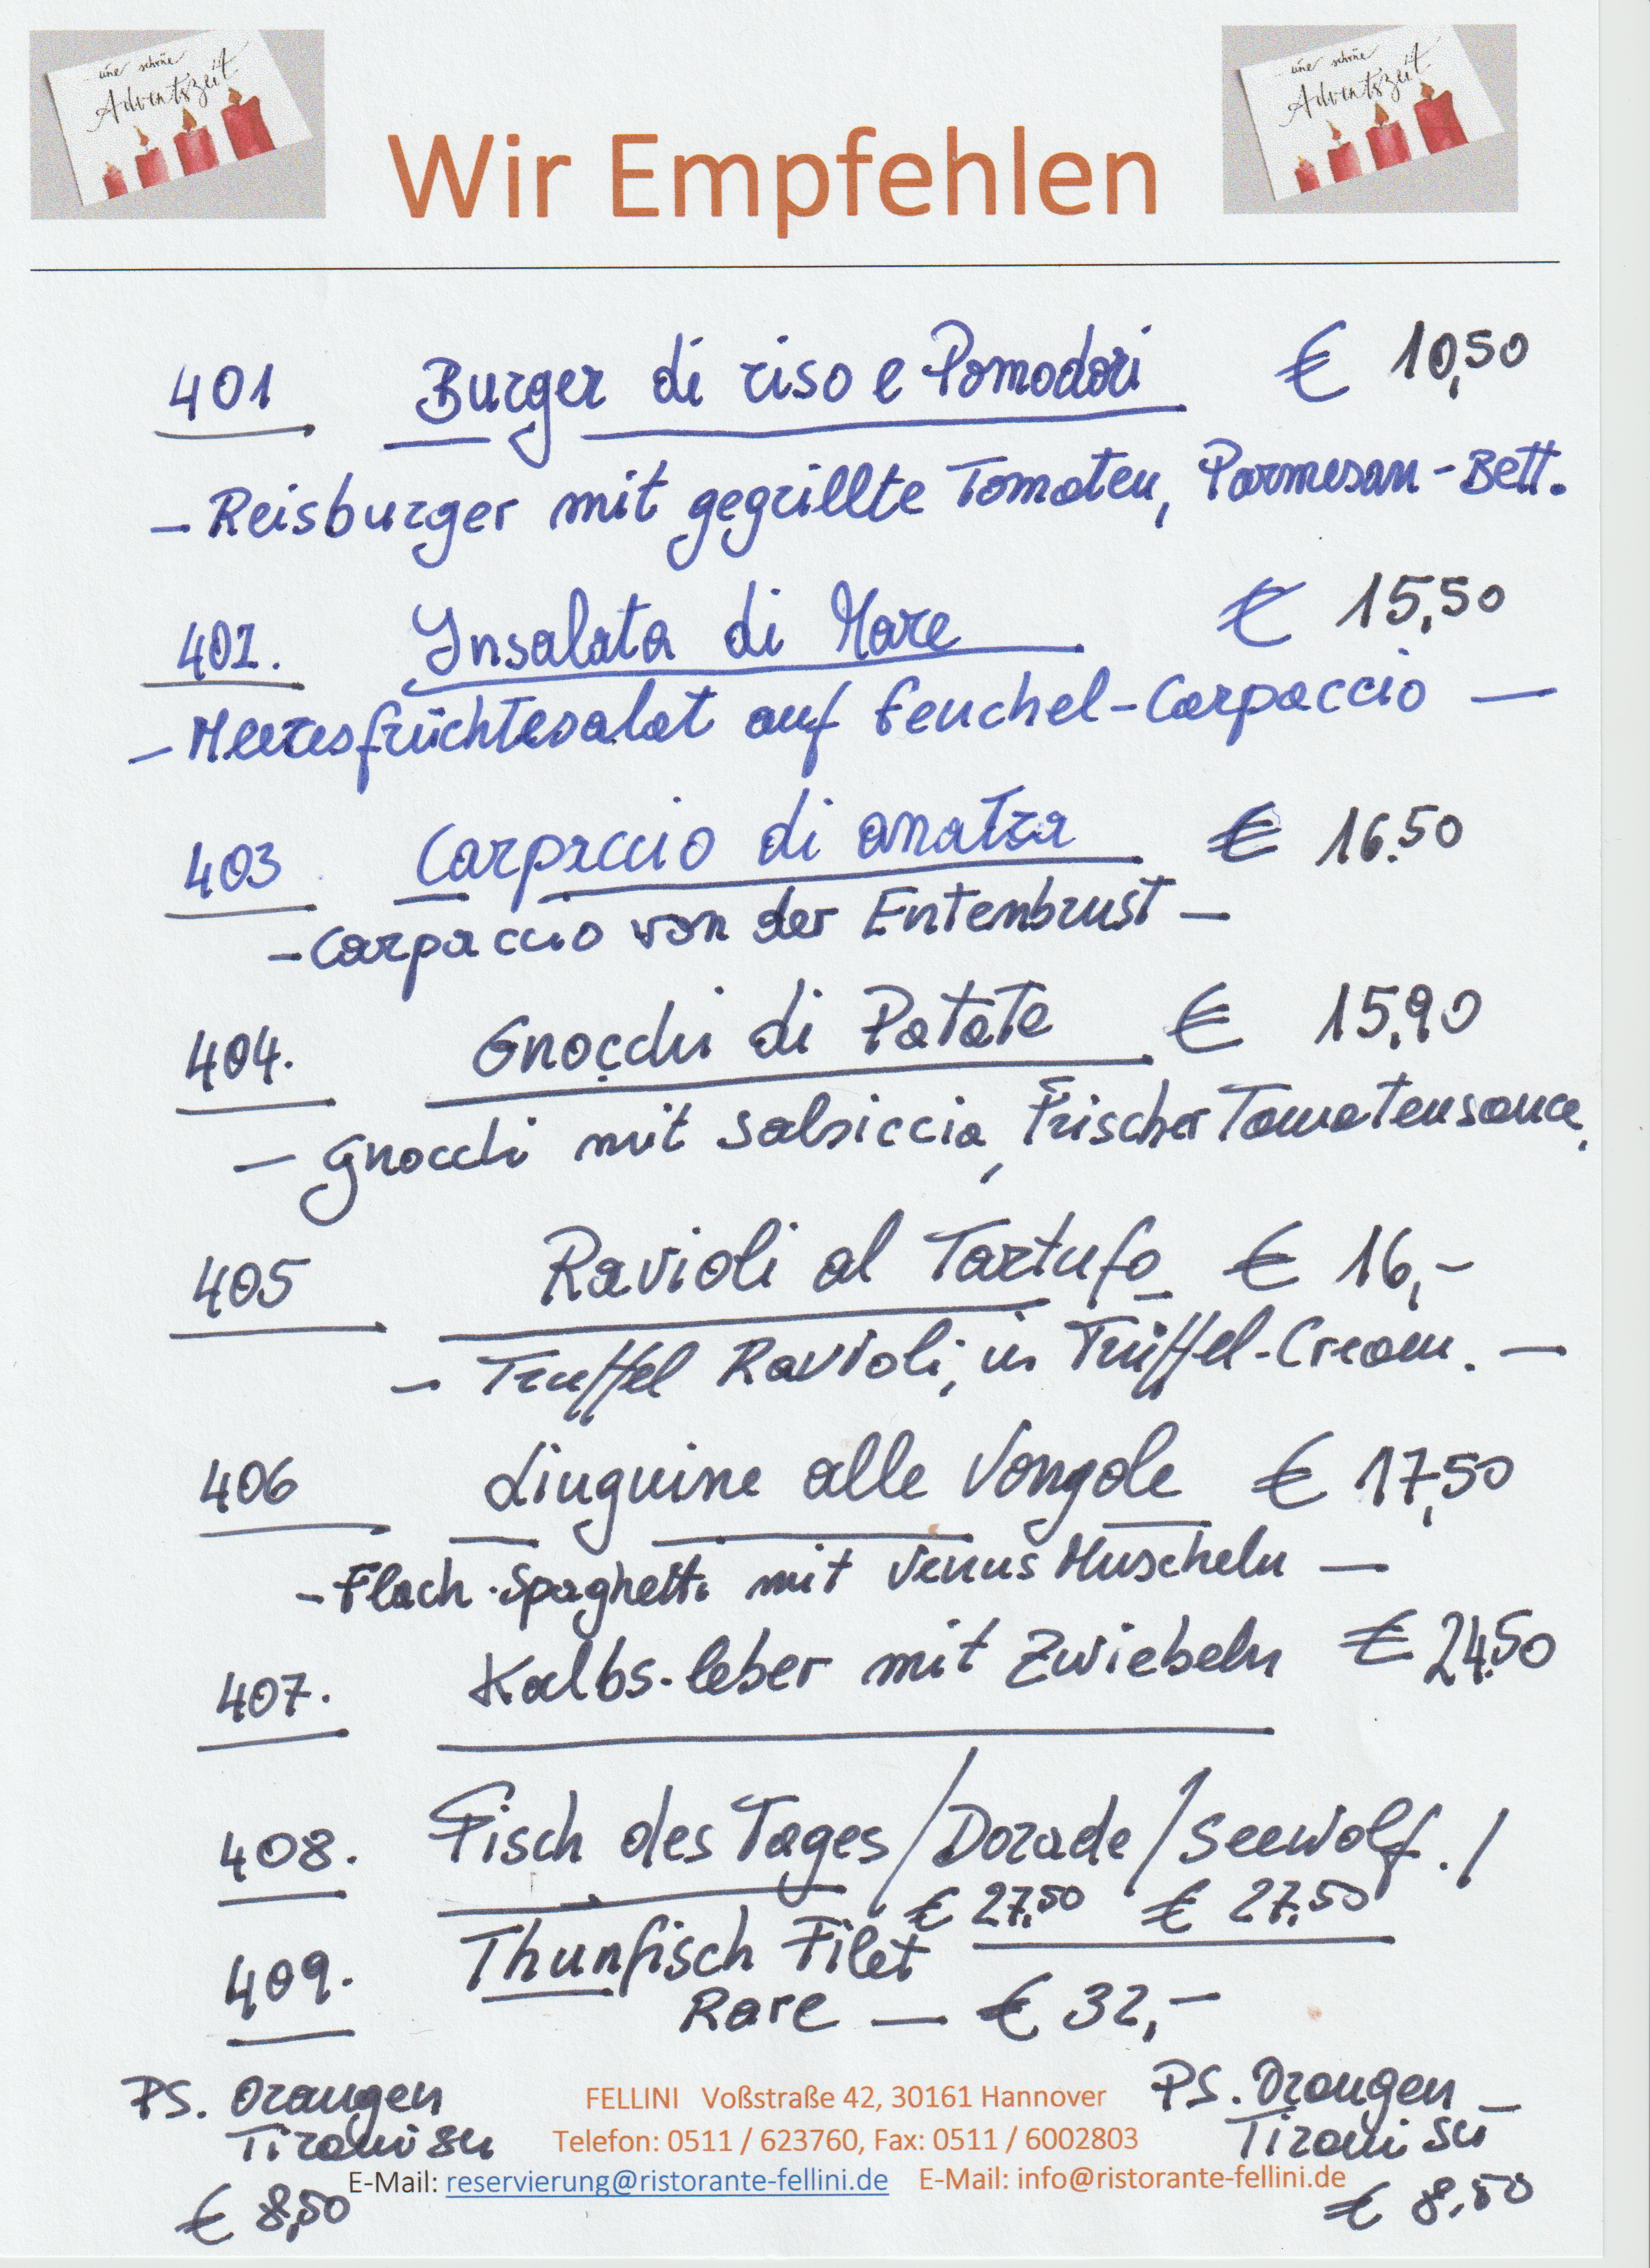 eine schöne
Adventszeit
eine schöne
Adventszeit
Wir Empfehlen
401 Burger di riso e Pomodori € 10,50
- Reisburger mit gegrillte Tomaten, Parmesan-Bett.
402. Insalata di Mare € 15,50
- Meeresfrüchtesalat auf Fenchel-Carpaccio -
403 Carpaccio di anatra € 16.50
- Carpaccio von der Entenbrust -
404. Gnocchi di Patate € 15,90
- Gnocchi mit Salsiccia, Frischer Tomatensauce.
405 Ravioli al Tartufo € 16,-
- Truffel Ravioli, in Trüffel-Cream. -
406 Linguine alle Vongole € 17,50
- Flach-Spaghetti mit Venus Muscheln -
407. Kalbs-leber mit Zwiebeln € 24.50
408. Fisch des Tages / Dorade / Seewolf. /
€ 27,50 € 27,50
409. Thunfisch Filet
Rare - € 32,-
PS. Orangen
Tiramisu
€ 8,50
FELLINI Voßstraße 42, 30161 Hannover
Telefon: 0511 / 623760, Fax: 0511 / 6002803
E-Mail: reservierung@ristorante-fellini.de E-Mail: info@ristorante-fellini.de
PS. Orangen -
Tiramisu
€ 8,50